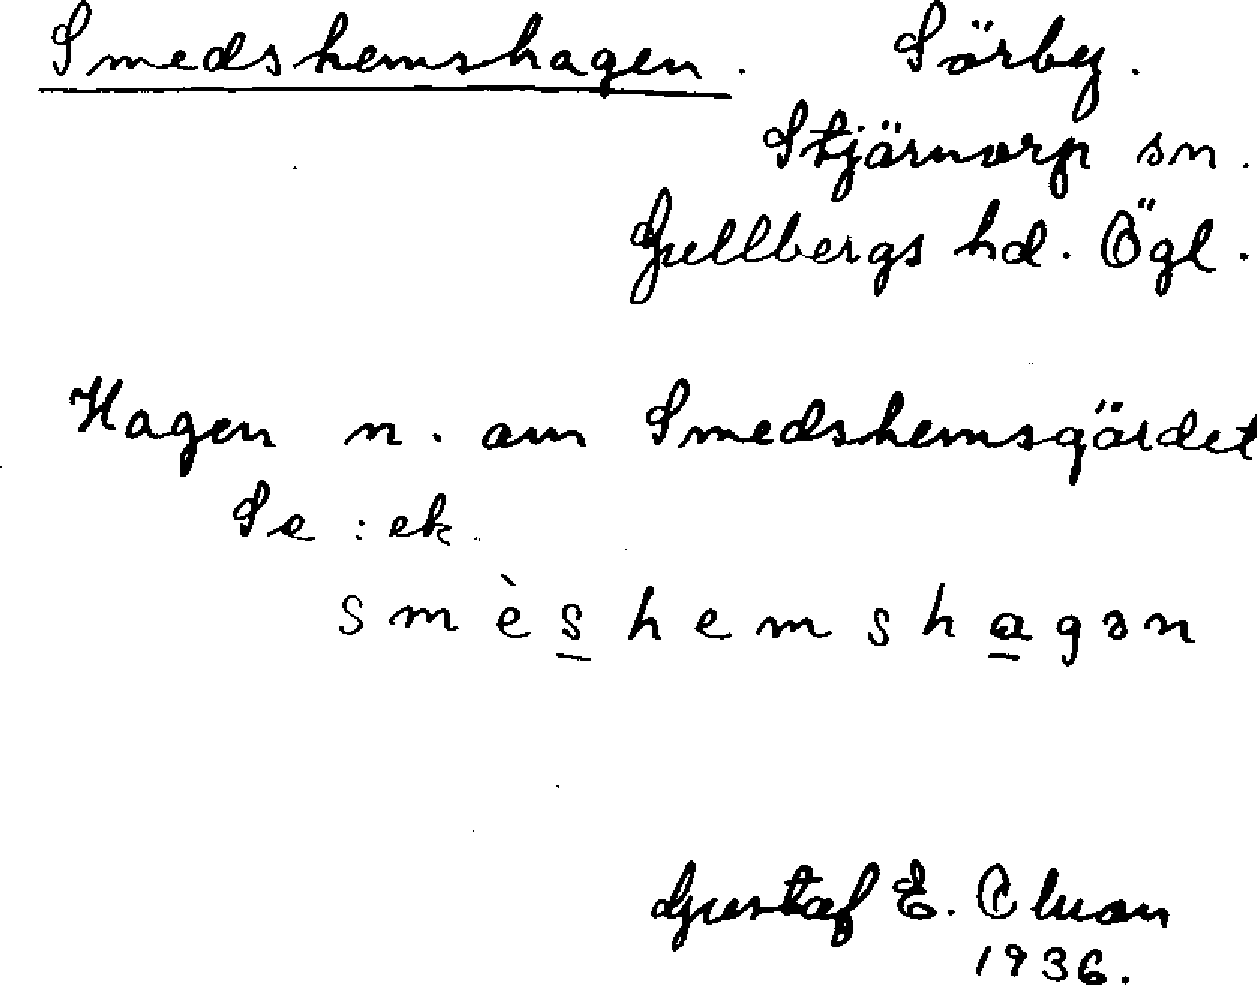 Smedshemshagen. Sörby.
Stjärnorp sn.
Gullbergs hd. Ögl.
Hagen n. om Smedshemsgärdet
Se : ek.
smèshemshagən
Gustaf E.
1936.